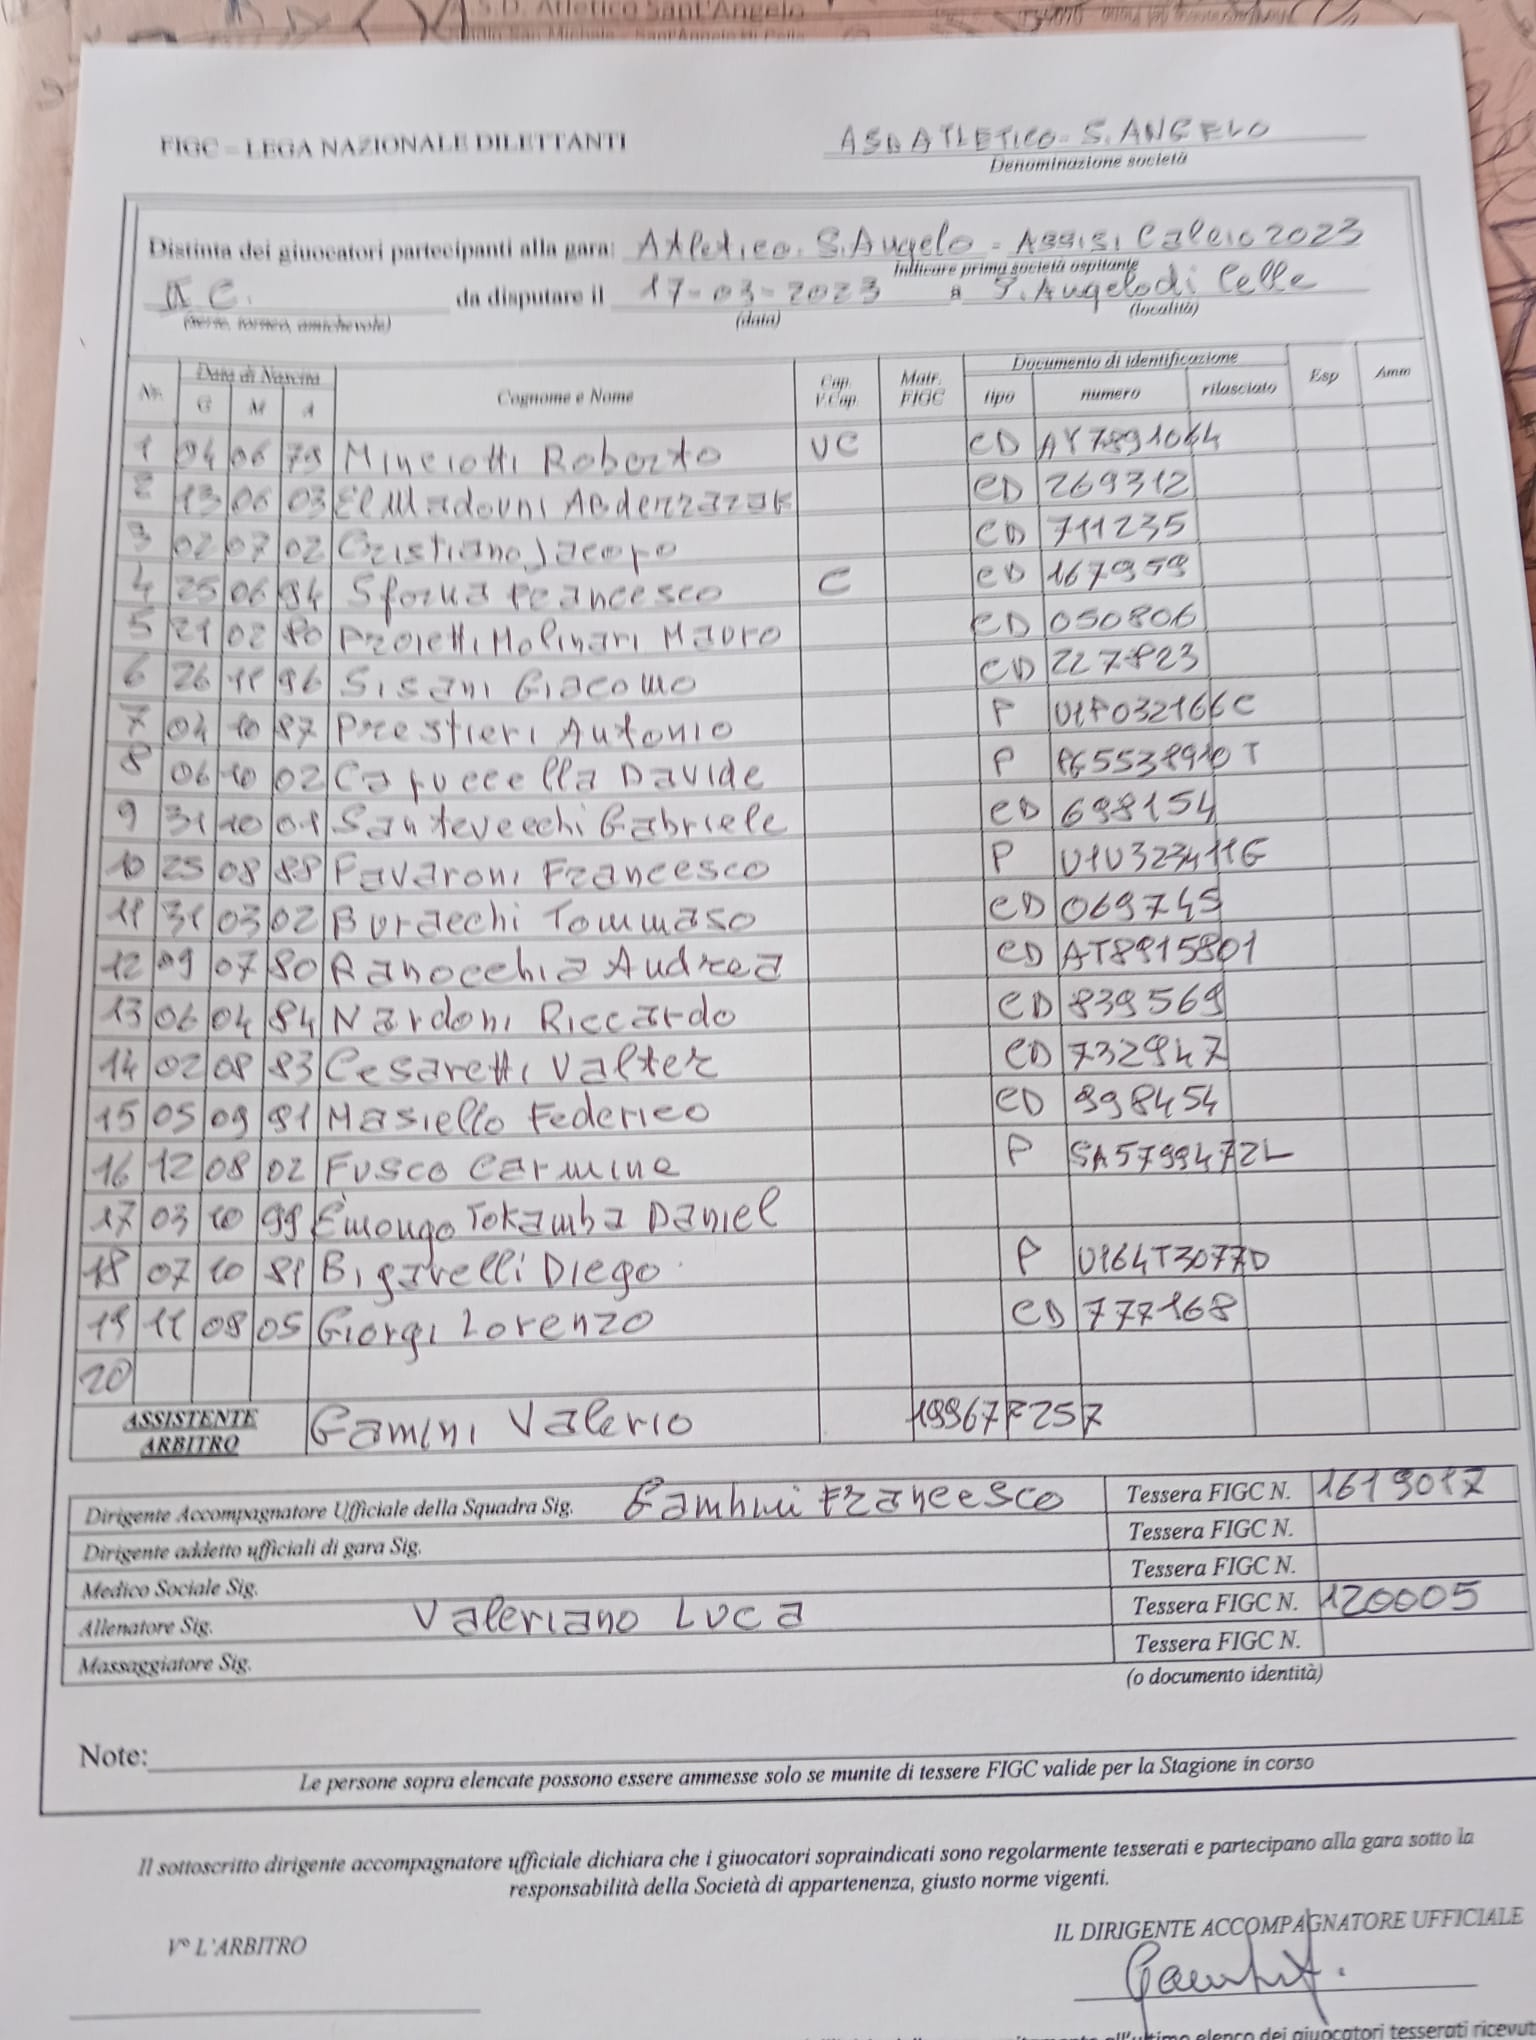 A.S.D. Atletico Sant'Angelo
FIGC – LEGA NAZIONALE DILETTANTI
ASD ATLETICO - S. ANGELO
Denominazione società
Distinta dei giuocatori partecipanti alla gara: Atletico. S. Angelo - ASSISI Calcio 2023
Indicare prima società ospitante
II C. da disputare il 17-03-2023 a S. Angelo di Celle
(serie, torneo, amichevole) (data) (località)
Nr. Data di Nascita Cognome e Nome Cap. V.Cap. Matr. FIGC Documento di identificazione Esp Amm
G M A tipo numero rilasciato
1 04 06 79 Minciotti Roberto VC CD AY7891064
2 13 06 03 El Madouni Abderrazak CD 269312
3 02 07 02 Cristiano Jacopo CD 711235
4 25 06 94 Sforna Francesco C CD 167959
5 21 02 80 Proietti Molinari Mauro CD 050806
6 26 11 96 Sisani Giacomo CD 227823
7 04 10 87 Prestieri Antonio P U1P032166C
8 06 10 02 Capuccella Davide P PG5538910T
9 31 10 01 Santevecchi Gabriele CD 698154
10 25 08 88 Favaroni Francesco P U1U323411G
11 31 03 02 Buracchi Tommaso CD 069745
12 09 07 80 Ranocchia Andrea CD AT8915801
13 06 04 84 Nardoni Riccardo CD 839569
14 02 08 83 Cesaretti Valter CD 732947
15 05 09 91 Masiello Federico CD 998454
16 12 08 02 Fusco Carmine P SA5799472L
17 03 10 99 Emongo Tokamba Daniel
18 07 10 81 Bigarelli Diego P U164T3077D
19 11 08 05 Giorgi Lorenzo CD 777168
20
ASSISTENTE ARBITRO Gamini Valerio 199677257
Dirigente Accompagnatore Ufficiale della Squadra Sig. Francesco Tessera FIGC N. 1619017
Dirigente addetto ufficiali di gara Sig. Tessera FIGC N.
Medico Sociale Sig. Tessera FIGC N.
Allenatore Sig. Valeriano Luca Tessera FIGC N. 120005
Massaggiatore Sig. Tessera FIGC N.
(o documento identità)
Note:
Le persone sopra elencate possono essere ammesse solo se munite di tessere FIGC valide per la Stagione in corso
Il sottoscritto dirigente accompagnatore ufficiale dichiara che i giuocatori sopraindicati sono regolarmente tesserati e partecipano alla gara sotto la
responsabilità della Società di appartenenza, giusto norme vigenti.
V° L'ARBITRO
IL DIRIGENTE ACCOMPAGNATORE UFFICIALE
all'ultimo elenco dei giuocatori tesserati